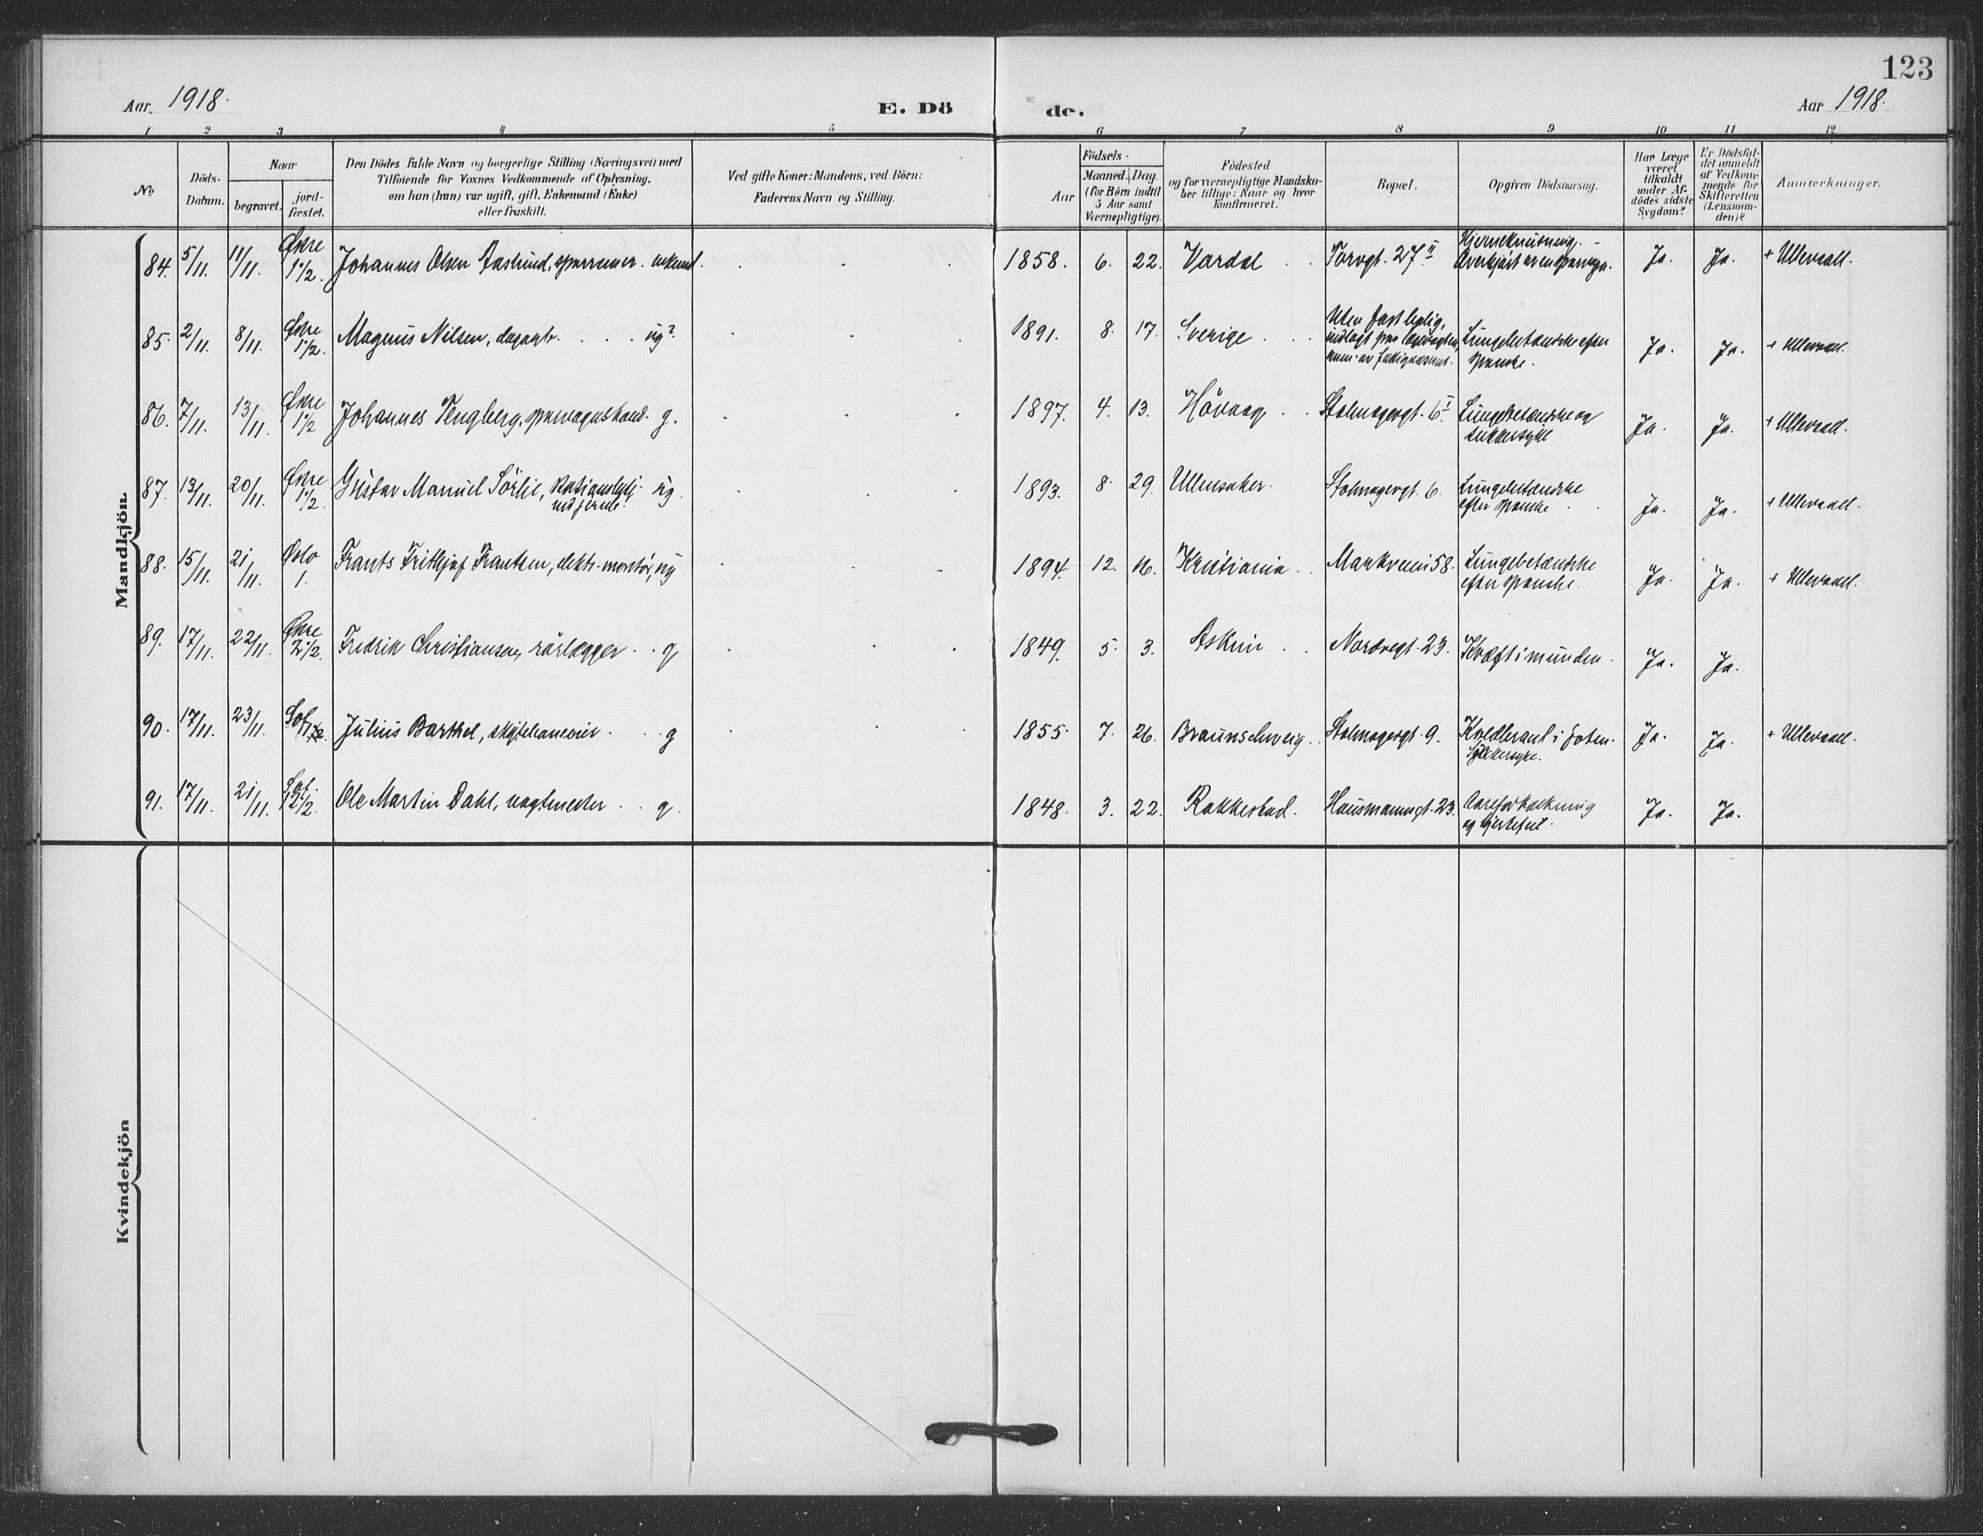 123
Aar 1918.
E. Dö
de.
Aar 1918.
1 2 3 4 5 6 7 8 9 10 11 12
No
Döds-
Datum.
Naar
begravet.
jord-
fæstet.
Den Dödes fulde Navn og borgerlige Stilling (Næringsvei) med
Tilföiende for Voxnes Vedkommende af Oplysning,
om han (hun) var ugift, gift, Enkemand (Enke)
eller fraskilt.
Ved gifte Koner: Mandens, ved Börn:
Faderens Navn og Stilling.
Födsels-
Aar
Maaned.
Dag.
(for Börn indtil
5 Aar samt
Værnepligtige).
Födested
og for værnepligtige Mandska-
ber tillige: Naar og hvor
konfirmeret.
Bopæl.
Opgiven Dödsaarsag.
Har Læge
været
tilkaldt
under Af-
dödes sidste
Sygdom?
Er Dödsfal-
det anmeldt
af Vedkom-
mende for
Skifteretten
(Lensman-
den)?
Anmærkninger.
Mandkjön.
84. 5/11. 11/11. Johannes Olsen Aaslund, enkemd. 1858. 6. 22. Vardal Torvgt. 27 II Ja. Ja. + Ullevaal.
85. 2/11. 8/11. Magnus Nilsen, ug? 1891. 8. 17. Sverige Uten fast bolig, Lungebetændelse efter spanske. Ja. Ja. + Ullevaal.
86. 7/11. 13/11. Johannes Tengberg, g. 1897. 4. 13. Hövaag Stolmagergt. 6 I Lungebetændelse og sukkersyke Ja. Ja. + Ullevaal.
87. 13/11. 20/11. Gustav Manuel Sörlie, ug. 1893. 8. 29. Ullensaker. Stolmagergt. 6. Lungebetændelse efter spanske Ja. Ja. + Ullevaal.
88. 15/11. 21/11. Oslo 1. Frants Frithjof Frantsen, elektr. montör, ug 1894. 12. 16. Kristiania Markveien 58. Lungebetændelse efter spanske. Ja. Ja. + Ullevaal.
89. 17/11. 22/11. Fredrik Christiansen, rörlægger g 1849. 5. 3. Askim Nordregt. 23. Kræft i munden. Ja. Ja.
90. 17/11. 23/11. Sof. Julius Barthel, g 1855. 7. 26. Braunschweig Stolmagergt. 9. Koldbrand i foten. Sukkersyke. Ja. Ja. + Ullevaal.
91. 17/11. 21/11. Sof. 12 1/2. Ole Martin Dahl, vagtmester g. 1848. 3. 22. Rakkestad. Hausmannsgt. 23. Aareforkalkning og hjertefeil. Ja. Ja.
Kvindekjön